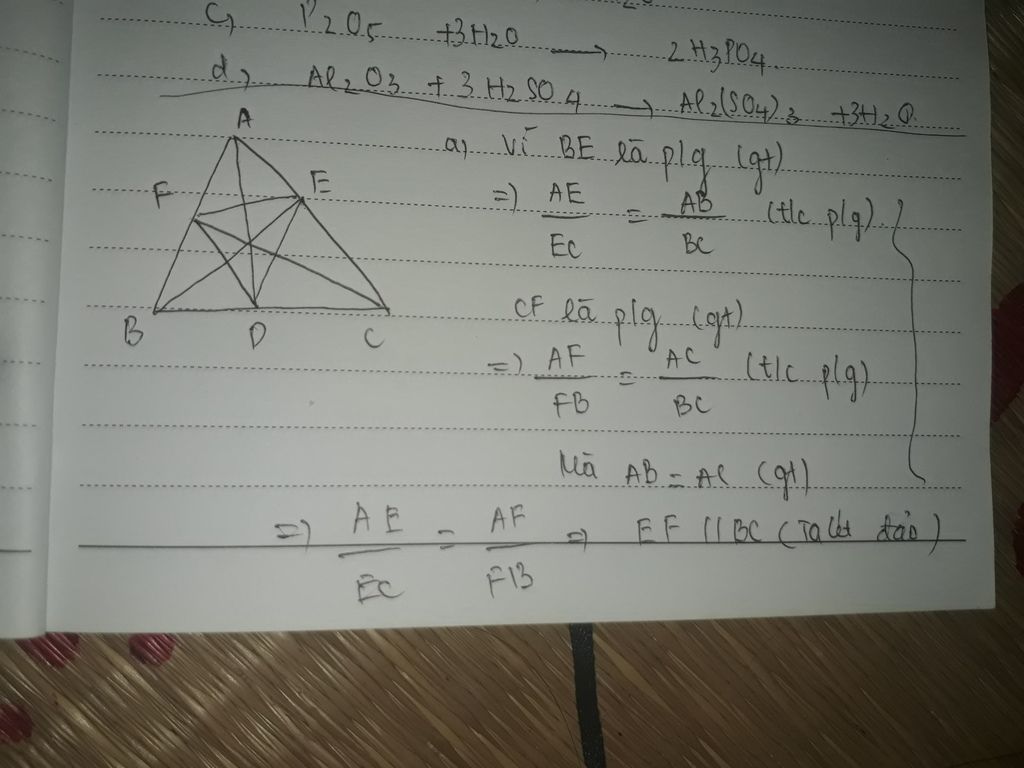 c, P2O5 +3H2O → 2H3PO4.
d, Al2O3 + 3H2SO4 → Al2(SO4)3 +3H2O.
A
F
E
B
D
C
a, Vì BE là p/g (gt)
=) AE/EC = AB/BC (t/c p/g).
CF là p/g (gt)
=) AF/FB = AC/BC (t/c p/g)
Mà AB = AC (gt)
=) AE/EC = AF/FB =) EF // BC (Talét đảo)